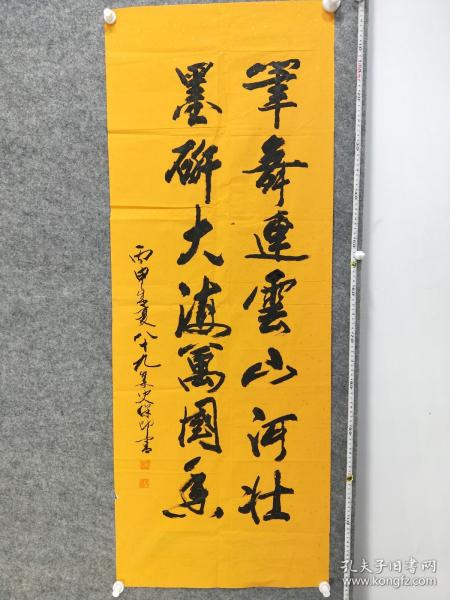 筆舞連雲山河壮
墨研大海萬國香
丙申年夏八十九叟史保印書
孔夫子旧书网
www.kongfz.com